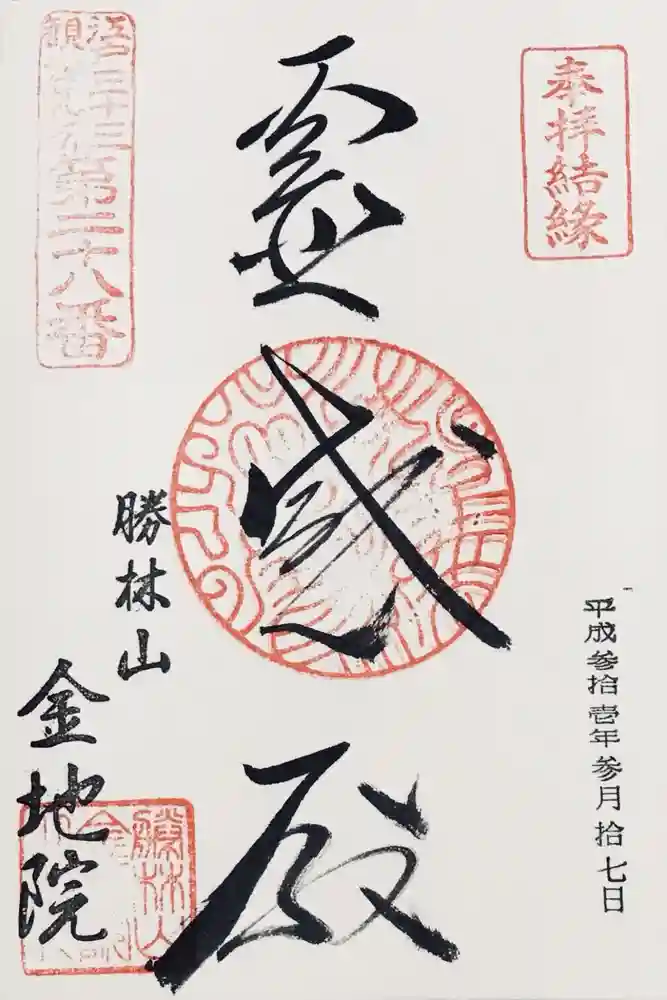 奉拝結縁
平成参拾壱年参月拾七日
霊感殿
江戸三十三
観音札所
第二十八番
勝林山
金地院